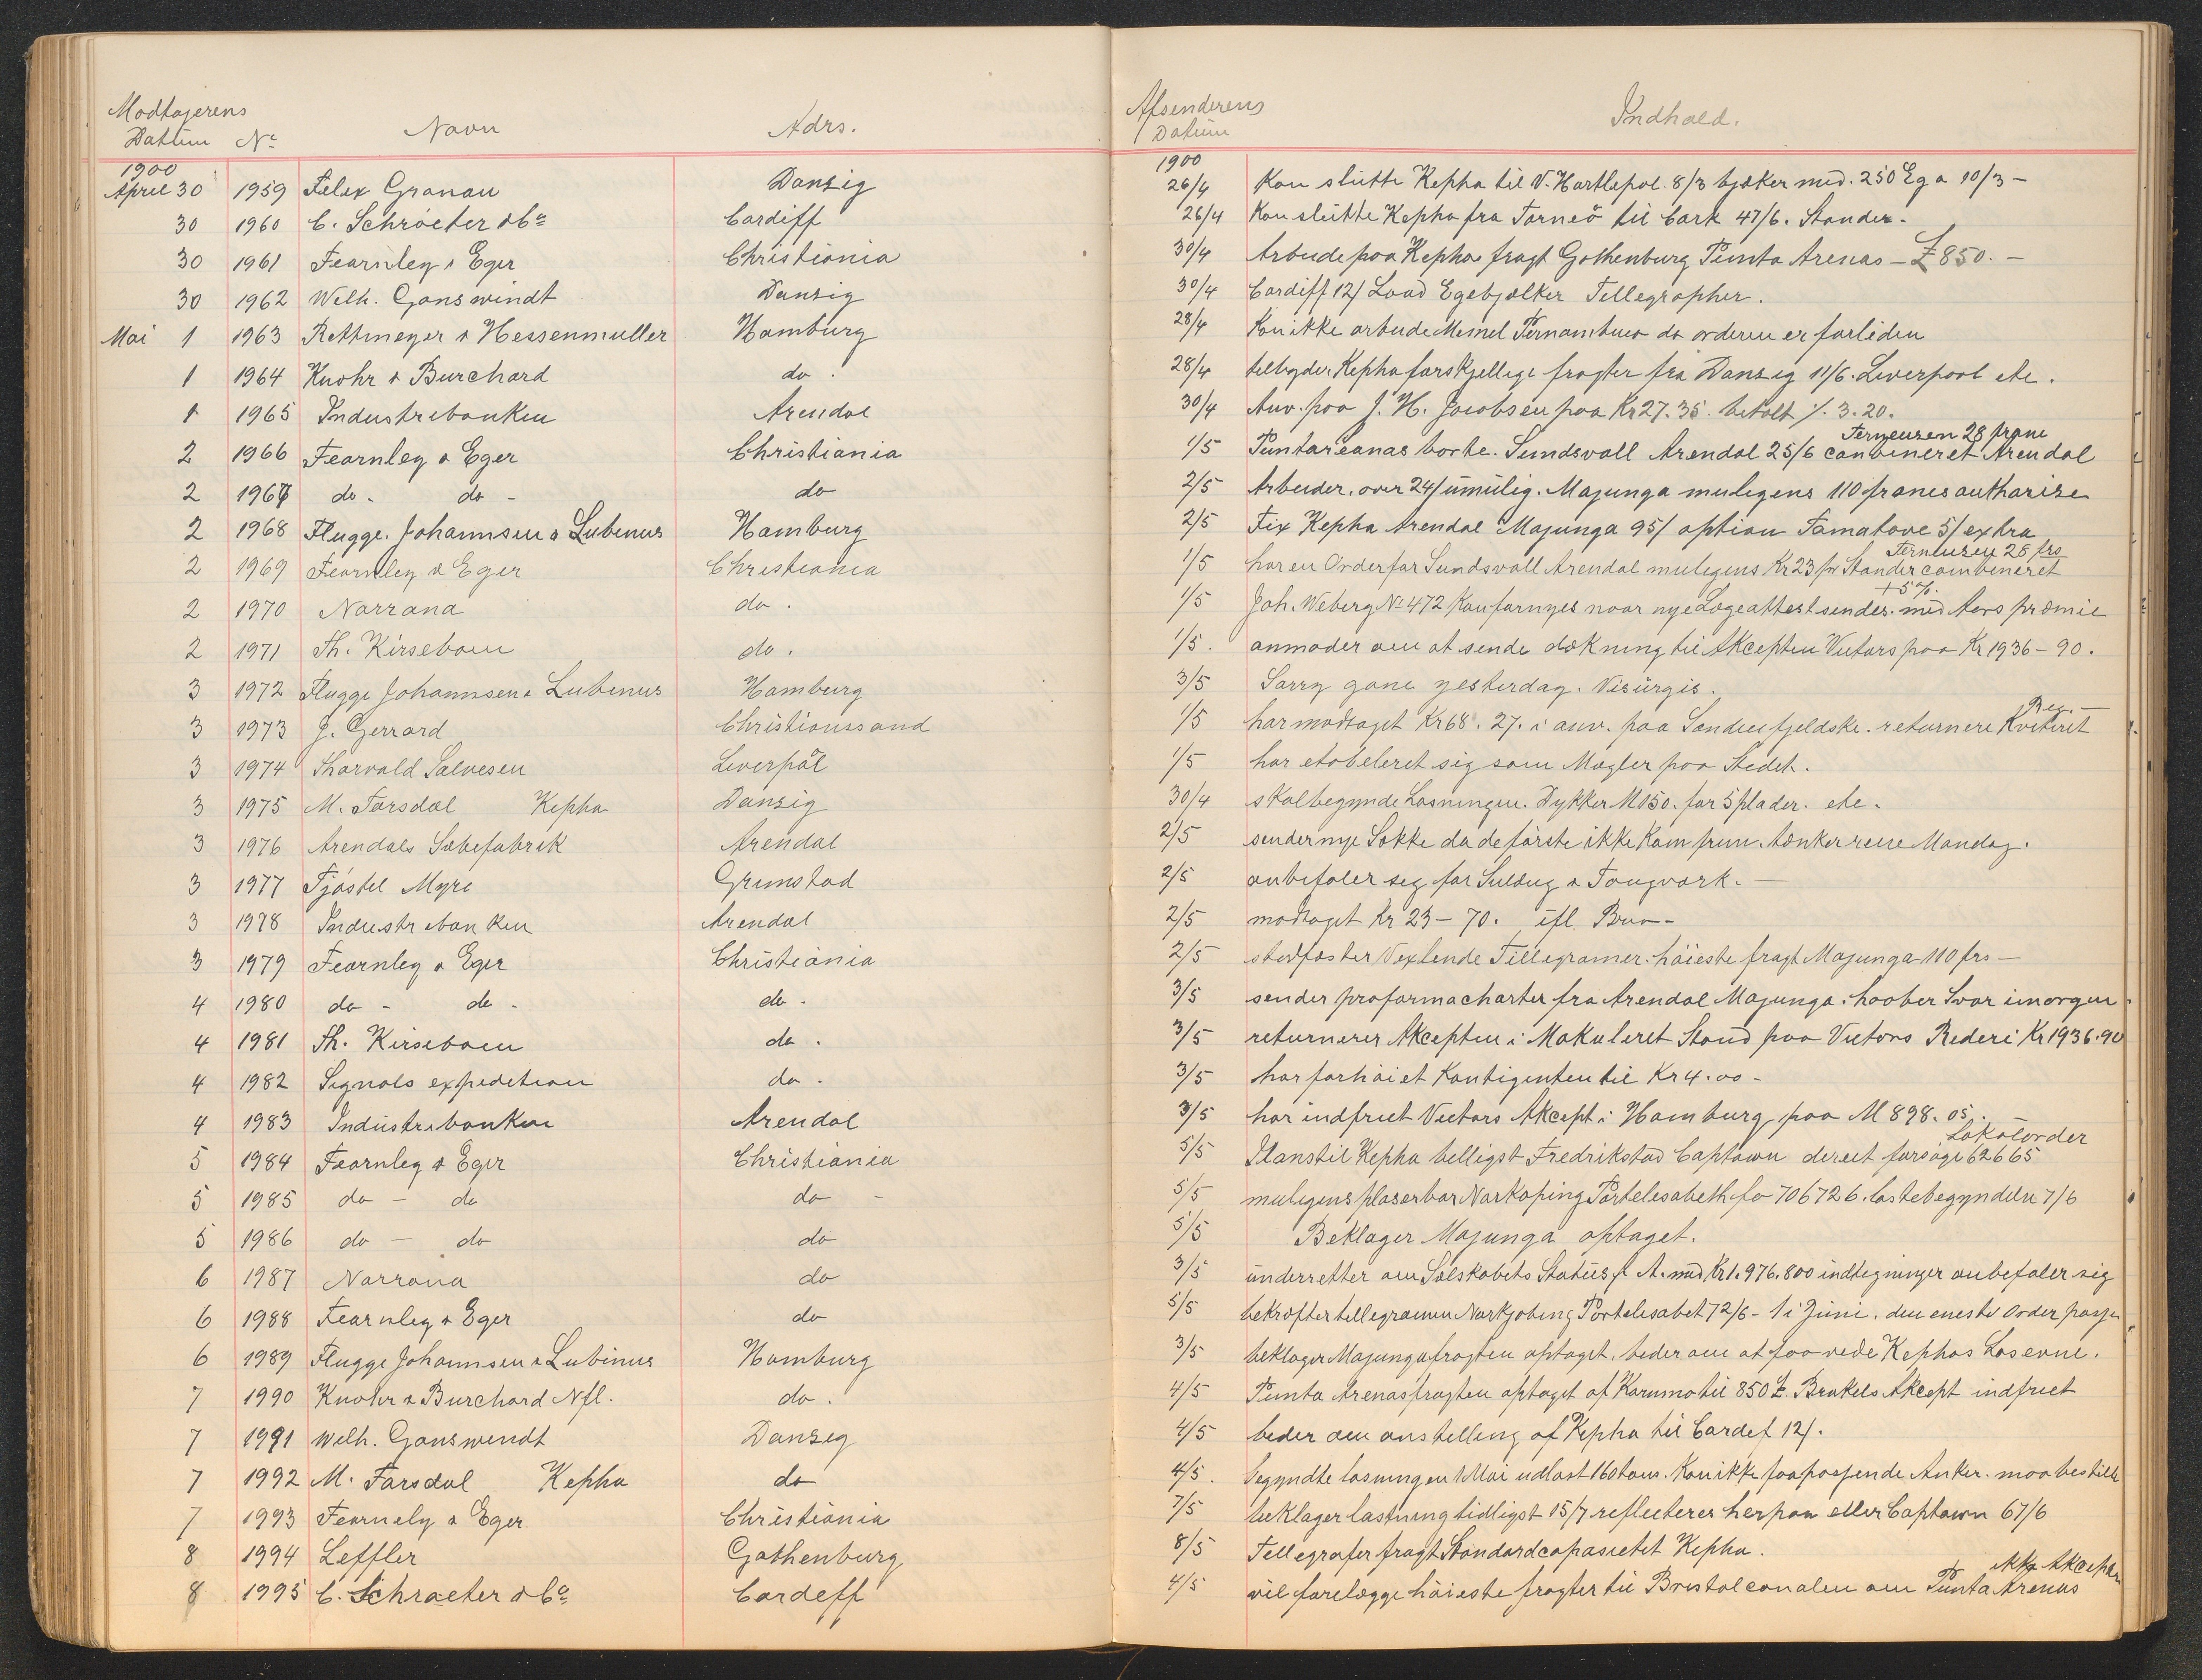 Modtagerens Datum Nº Navn Adrs. Afsenderens Datum Indhold.
1900 1900
April 30 1959 Felix Granau Danzig 26/4 Kan slutte Kepha til V. Hartlepol. 8/3 bjelker med. 250 Eg a 10/3 –
30 1960 C. Schröeter & Co Cardiff 26/4 Kan slutte Kepha fra Torneö til Cark 47/6. Stander.
30 1961 Fearnley & Eger Christiania 30/4 Arbeide paa Kepha fragt Gothenburg Punta Arenas – £850. –
30 1962 Wilh. Ganswindt Danzig 30/4 Cardiff 12/ Load Egebjælker Tellegrapher.
Mai 1 1963 Rettmeyer & Hessenmuller Hamburg 28/4 Kan ikke arbeide Memel Pernambuco da orderen er forliden
1 1964 Knohr & Burchard do. 28/4 tilbyder Kepha forskjellige fragter fra Danzig 11/6. Liverpool etc.
1 1965 Industribanken Arendal 30/4 Anv. paa J. H. Jacobsen paa Kr 27.35. betalt /. 3.20.
Terneuzen 28 franc
2 1966 Fearnley & Eger Christiania 1/5 Puntareanas borte. Sundsvall Arendal 25/6 combineret Arendal
2 1967 do – do – do 2/5 Arbeider. over 24/ umulig. Majunga muligens 110 francs autharize
2 1968 Flugge. Johannsen & Lubinus Hamburg 2/5 Fix Kepha Arendal Majunga 95/ option Tamatave 5/ extra
Terneuzen 28 frs
2 1969 Fearnley & Eger Christiania 1/5 har en Order for Sundsvall Arendal muligens Kr 23 pr Stander combineret
+ 5%.
2 1970 Norrøna do. 1/5 Joh. Weberg Nº 472 Kan fornyes naar nye Lægeattest sendes. med Aars præmie
2 1971 Th. Kirseboem do. 1/5. anmoder om at sende dækning til Akcepten Victors paa Kr 1936 – 90.
3 1972 Flugge Johannsen & Lubinus Hamburg 3/5 Sorry gone yesterday. Visurgis.
Reg. –
3 1973 J. Gerrard Christianssand 1/5 har modtaget Kr 68. 27. i anv. paa Sondenfjeldske. returnere Kviteret
3 1974 Thorvald Salvesen Liverpol 1/5 har etableret sig som Mægler paa Stedet.
3 1975 M. Tarsdal Kepha Danzig 30/4 skal begynde Losningen. Dykker M 150. for 5 plader. etc.
3 1976 Arendals Sæbefabrik Arendal 2/5 sender nye Sække da de første ikke Kom frem. tænker reise Mandag.
3 1977 Tjøstel Myre Grimstad 2/5 anbefaler seg for Seildug & Tougværk. –
3 1978 Industribanken Arendal 2/5 modtaget Kr 23 – 70. ifl. Brev –
3 1979 Fearnley & Eger Christiania 2/5 stadfæster Vexlende Tillegramer. høieste fragt Majunga 110 frs –
4 1980 do – do – do. 3/5 sender proforma charter fra Arendal Majunga. haaber Svar imorgen.
4 1981 Th. Kirseboem do. 3/5 returnerer Akcepten i Makuleret Stand paa Victors Rederi Kr 1936.90
4 1982 Signals expedition do. 3/5 har forhøiet Kontigenten til Kr 4.00 –
4 1983 Industribanken Arendal 3/5 har indfriet Victors Akcept i Hamburg paa M 898.05.
Lokalorder
5 1984 Fearnley & Eger Christiania 5/5 Instil Kepha billigst Fredrikstad Captown direct forsøge 62665
5 1985 do – do do – 5/5 muligens plaserbar Norkoping Portelisabeth fo 706726. lastebegyndelse 7/6
5 1986 do – do do 5/5 Beklager Majunga optaget.
6 1987 Norrøna do 3/5 underretter om Selskabets Status f A. med Kr 1.976.800 indtegninger anbefaler sig
6 1988 Fearnley & Eger do 5/5 bekræfter tellegramm Norkjobing Portelisabet 72/6 – 1 i Juni. den eneste Order
6 1989 Flugge Johannsen & Lubinus Hamburg 3/5 beklager Majungafragten optaget. beder om at faa vide Kephas Losevne.
7 1990 Knohr & Burchard Nfl. do. 4/5 Punta Arenasfragten optaget af Karmmo til 850 £. Brakels Akcept indfriet
7 1991 Wilh. Ganswindt Danzig 4/5 beder om anstilling af Kepha til Cardif 12/.
7 1992 M. Tarsdal Kepha do 4/5. begyndte losningen 1 Mai udlost 160 tons. Kan ikke faa passende Anker. maa bestille
7 1993 Fearnely & Eger Christiania 7/5 beklager lastning tidligst 15/7 reflecterer herpaa eller Captown 67/6
8 1994 Leffler Gothenburg 8/5 Tellegrafer fragt Standardcapasietet Kepha.
Akcepten
8 1995 C. Schroeter & Co Cardiff 4/5 vil forelægge høieste fragter til Bristolcanalen om Punta Arenas